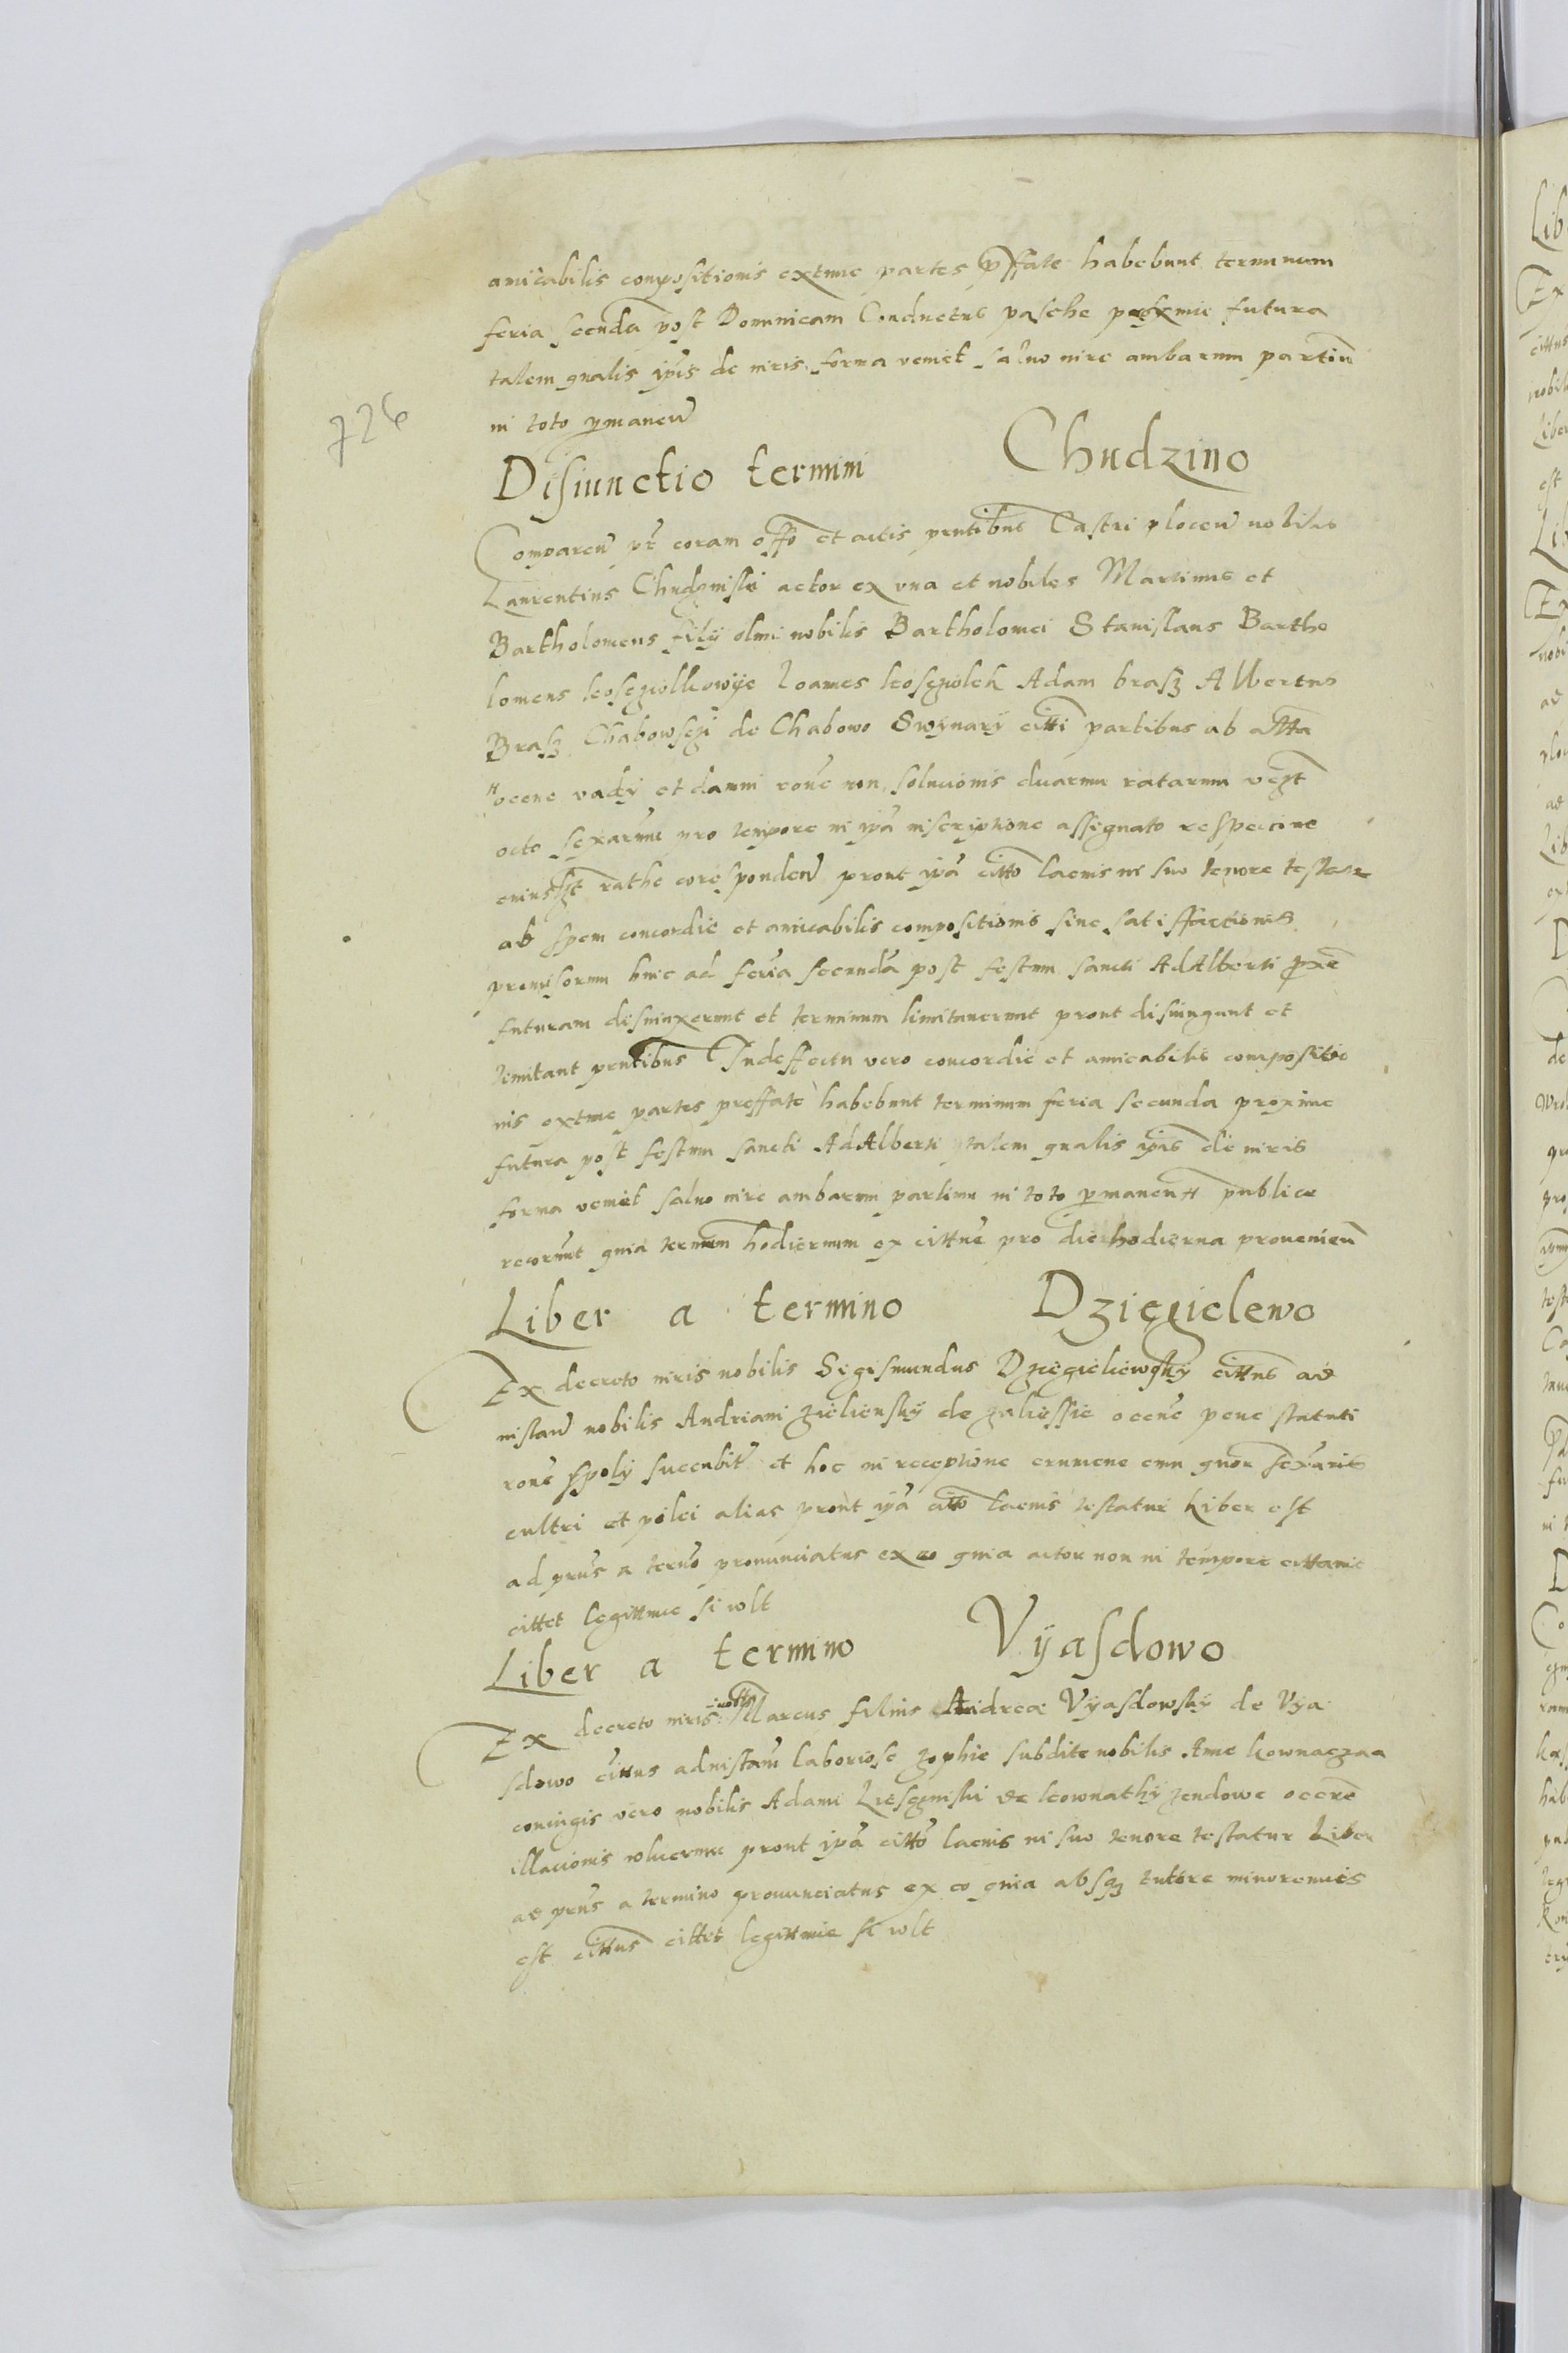 amicabilis compositionis extunc partes prffate habebunt terminum
feria secunda post Dominicam Conductus pasche proxime futura
talem qualis ipis de iuris forma veniet saluo iure ambarum partium
in toto pmanen
726
Disiunctio termini Chudzino
Comparen pr coram offo et actis pntibus Castri plocen nobiles
Laurentius Chudzinski actor ex vna et nobiles Martinus et
Bartholomeus filij olim nobilis Bartholomei Stanislaus Bartho
lomeus Joannes Adam brasz Albertus
Brasz Chabowsczi de Chabowo Swynarÿ citti partibus ab alta
occne vadÿ et damni rone non solucionis duarum ratarum
octo sexarum pro tempore in ipa inscriptione assignato respectiue
rathe coresponden prout ipa citto lacius in suo tenore testatur
ad spem concordie et amicabilis compositionis siue satisffactionis
premisorum hinc ad feria secunda post festum sancti AdAlberti pxe
futuram disiuxerunt et terminum limitauerunt prout disiungunt et
limitant pntibus Indeffectu vero concordie et amicabilis compositio
nis extunc partes preffate habebunt terminum feria secunda proxime
futura post festum sancti AdAlberti talem qualis ipis de iuris
forma veniet saluo iure ambarum partium in toto pmanen publice
recorunt quia termum hodiernum ex cittne pro die hodierna prouenien
Liber a termino Dziegielewo
Ex decreto iuris nobilis Sigismundus Dziegielewskÿ cittus ad
instan nobilis Andriani zielienskÿ de zaliessie occne pene statuti
rone spolÿ succubit et hoc in receptione crumene cum quor sexaris
cultri et pilei alias prout ipa citto lacius testatur Liber est
ad pns a termo pronunciatus ex eo quia actor non in tempore cittauit
cittet legittime si wlt
Liber a termino Vÿasdowo
Ex decreto iuris Marcus filius Andree Vÿasdowskÿ de Vÿa
sdowo cittus adinstan laboriose zophie subdite nobilis Anne kownaczaa
coniugis vero nobilis Adami de kownathÿ zendowe occne
illacionis wlnerum prout ipa citto lacius in suo tenore testatur Liber
ad pns a termino pronunciatus ex eo quia absqz tutore minorennis
est cittus cittet legittime si wlt